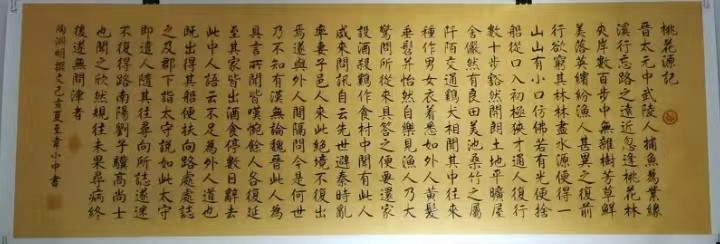 桃花源记
晋太元中武陵人捕魚為業緣
溪行忘路之遠近忽逢桃花林
夹岸數百步中無雜樹芳草鮮
美落英缤纷漁人甚異之復前
行欲窮其林林盡水源便得一
山山有小口仿佛若有光便捨
船從口入初極狹才通人復行
數十步豁然開朗土地平曠屋
舍儼然有良田美池桑竹之屬
阡陌交通鷄犬相聞其中往来
種作男女衣着悉如外人黄髮
垂髫并怡然自樂見漁人乃大
驚問所從来具答之便要還家
設酒殺鷄作食村中聞有此人
咸来問訊自云先世避秦時亂
率妻子邑人来此绝境不復出
焉遂與外人間隔問今是何世
乃不知有漢無論魏晋此人為
具言所聞皆嘆惋餘人各復延
至其家皆出酒食停數日辭去
此中人語云不足為外人道也
既出得其船便扶向路處處誌
之及郡下詣太守說如此太守
即遣人隨其往尋向所誌遂迷
不復得路南陽劉子驥高尚士
也聞之欣然規往未果尋病終
後遂無問津者
陶渊明撰文己亥夏至韋小中書